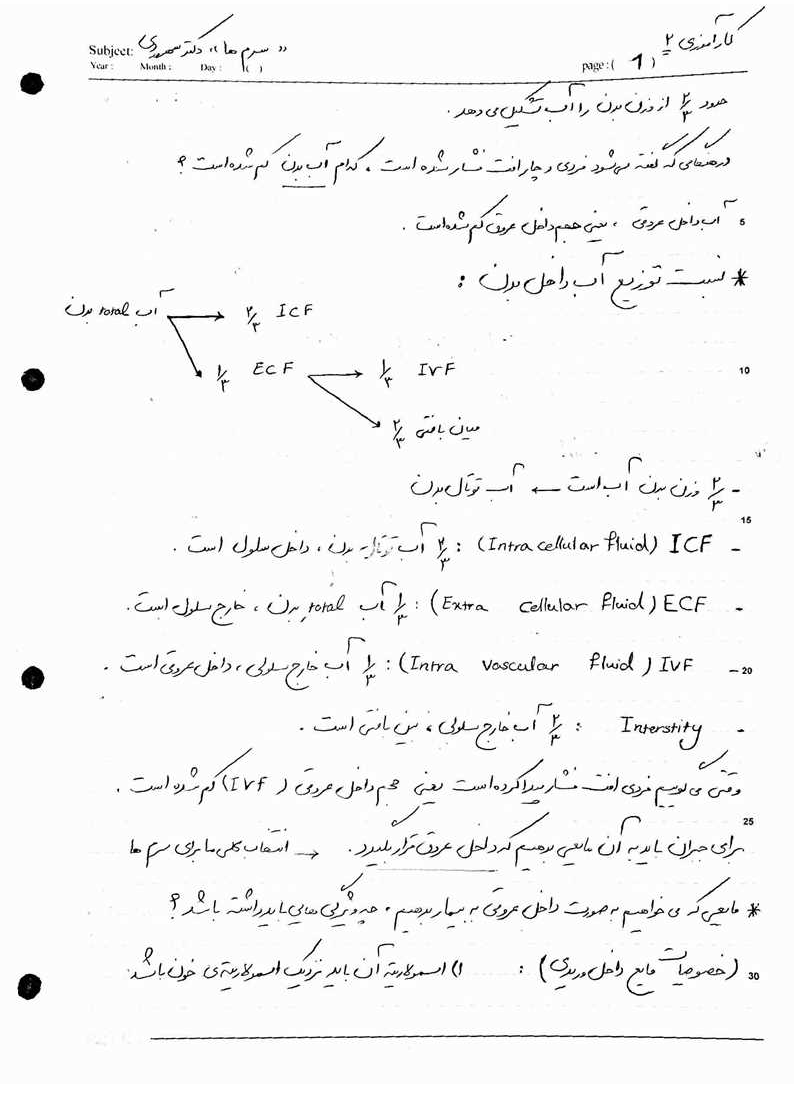 کارآموزی ۲
Subject: «سرم ها» دکتر
Year : Month : Day : ( ) page : ( 1 )
حدود ۲/۳ از وزن بدن را آب تشکیل می دهد .
در هنگامی که گفته می شود فردی دچار افت فشار شده است ، کدام آب بدن کم شده است ؟
5 آب داخل عروقی ، یعنی حجم داخل عروق کم شده است .
* نسبت توزیع آب داخل بدن :
آب total بدن → ۲/۳ ICF
→ ۱/۳ ECF → ۱/۳ IVF
10
→ ۲/۳ میان بافتی
- ۲/۳ وزن بدن آب است ← آب توتال بدن
15
- ICF (Intra cellular fluid) : ۲/۳ آب توتال بدن ، داخل سلول است .
- ECF (Extra cellular fluid) : ۱/۳ آب total بدن ، خارج سلول است .
20 - IVF (Intra vascular fluid) : ۱/۳ آب خارج سلولی ، داخل عروقی است .
- Interstity : ۲/۳ آب خارج سلولی ، بین بافتی است .
وقتی می گوییم فردی افت فشار پیدا کرده است یعنی حجم داخل عروقی (IVF) کم شده است .
25
برای جبران باید به آن مایعی بدهیم که داخل عروق قرار بگیرد . → انتخاب کلی ما برای سرم ها
* مایعی که می خواهیم به صورت داخل عروقی به بیمار بدهیم ، چه ویژگی هایی باید داشته باشد ؟
30 (خصوصیات مایع داخل وریدی) : ۱) اسمولاریته آن باید نزدیک اسمولاریته ی خون باشد